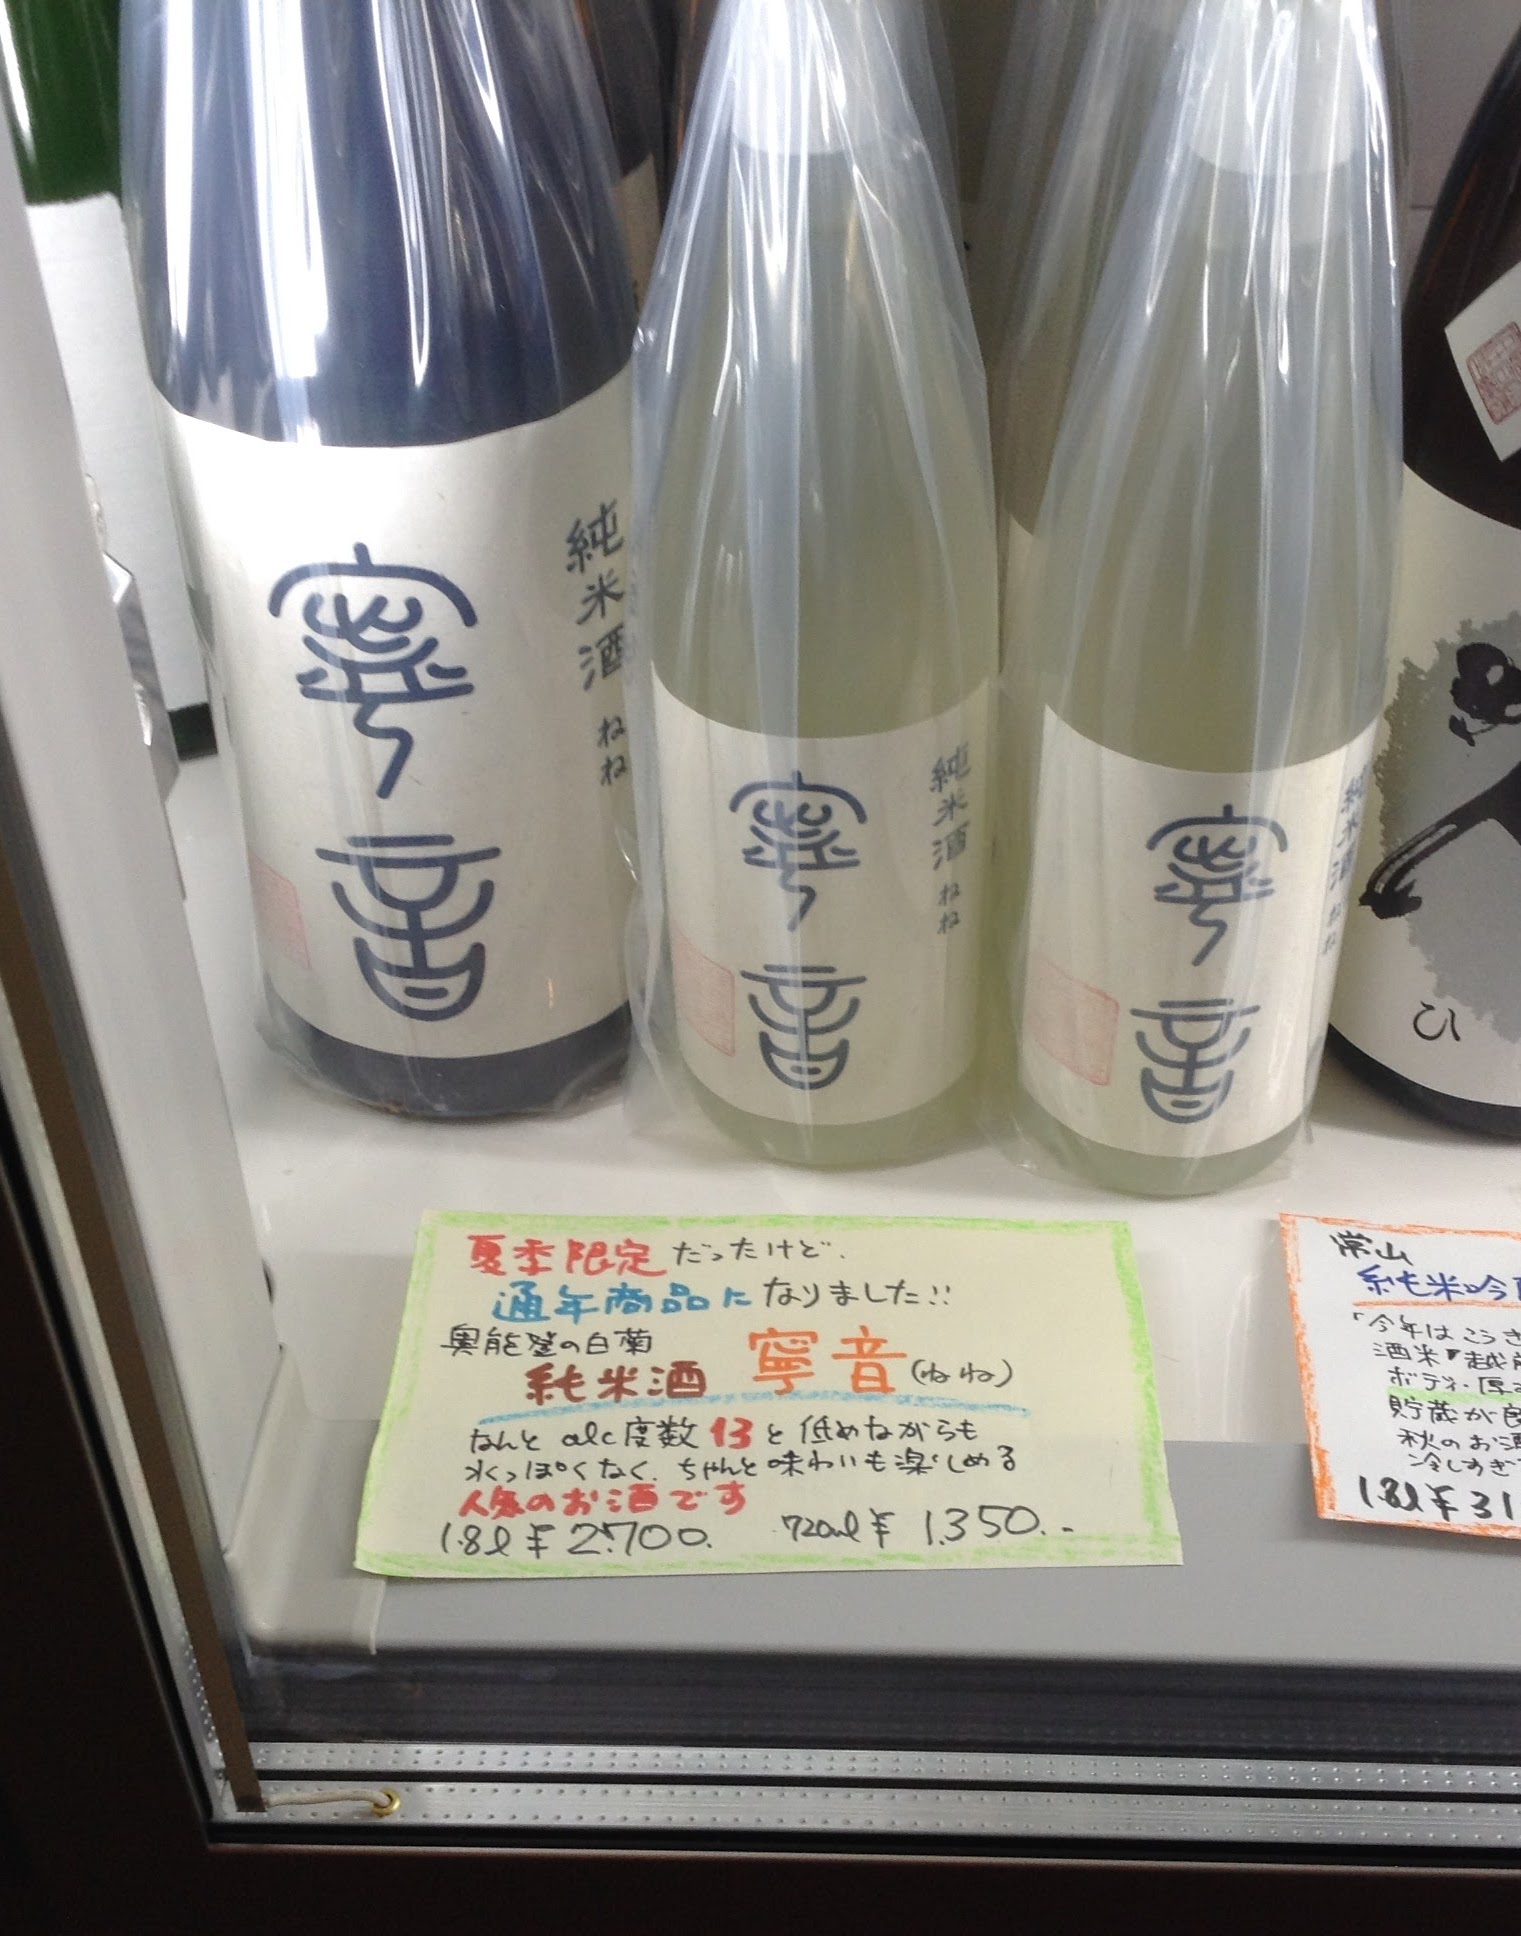 寧音
純米酒 ねね
寧音
純米酒 ねね
寧音
純米酒 ねね
ひ
夏季限定だったけど、
通年商品になりました!!
奥能登の白菊
純米酒 寧音(ねね)
なんとalc度数13と低めながらも
水っぽくなく、ちゃんと味わいも楽しめる
人気のお酒です
1.8l ¥2,700. 720ml ¥1,350.-
常山
純米吟
「今年はこうき
酒米『越前
ボディ・厚
貯蔵が良
秋のお酒
冷しすぎ
1.8l ¥31